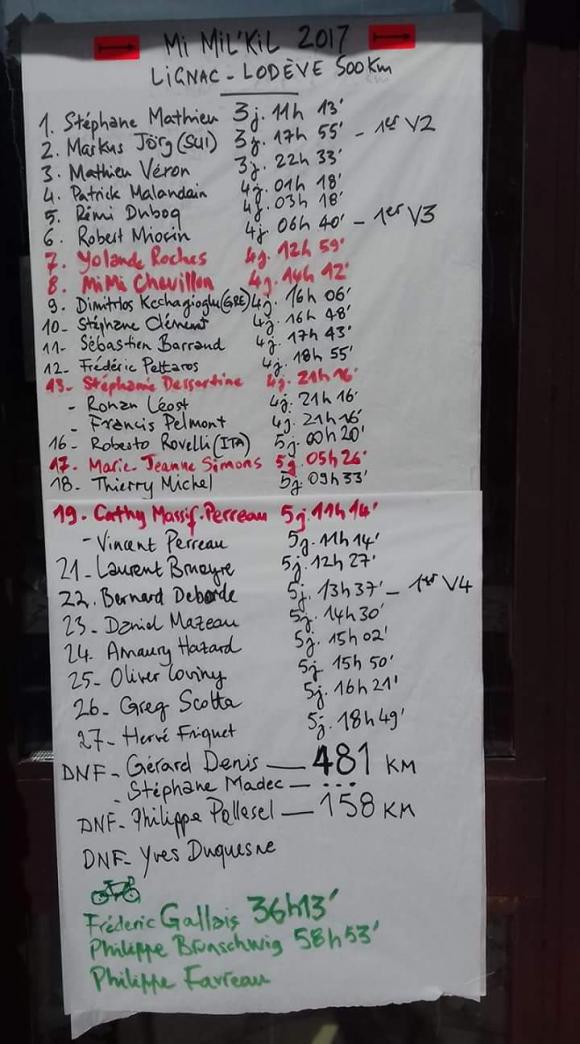 Mi MiL'KiL 2017
LiGNAC - LODÈVE 500Km
1. Stéphane Mathieu 3j. 11h 13'
2. Markus Jörg (SUI) 3j. 17h 55' - 1er V2
3. Mathieu Véron 3j. 22h 33'
4. Patrick Malandain 4j. 01h 18'
5. Rémi Duboq 4j. 03h 18'
6. Robert Miorin 4j. 06h 40' - 1er V3
7. Yolande Roches 4j. 12h 59'
8. MiMi Chevillon 4j. 14h 12'
9. Dimitrios (GRE) 4j. 16h 06'
10- Stéphane Clément 4j. 16h 48'
11- Sébastien Barraud 4j. 17h 43'
12- Frédéric Pettaros 4j. 18h 55'
13- Stéphanie Dessertine 4j. 21h 16'
- Ronan Léost 4j. 21h 16'
- Francis Pelmont 4j. 21h 16'
16- Roberto Rovelli (ITA) 5j. 00h 20'
17- Marie-Jeanne Simons 5j. 05h 26'
18- Thierry Michel 5j. 09h 33'
19- Cathy Massif-Perreau 5j. 11h 14'
- Vincent Perreau 5j. 11h 14'
21- Laurent Brueyre 5j. 12h 27'
22. Bernard Deborde 5j. 13h 37' - 1er V4
23- Daniel Mazeau 5j. 14h 30'
24. Amaury Hazard 5j. 15h 02'
25- Oliver Loviny 5j. 15h 50'
26- Greg Scotta 5j. 16h 21'
27- Hervé Friquet 5j. 18h 49'
DNF- Gérard Denis — 481 KM
- Stéphane Madec — ...
DNF- Philippe Pollesel — 158 KM
DNF- Yves Duquesne
Fréderic Gallais 36h13'
Philippe Brunschwig 58h53'
Philippe Favreau